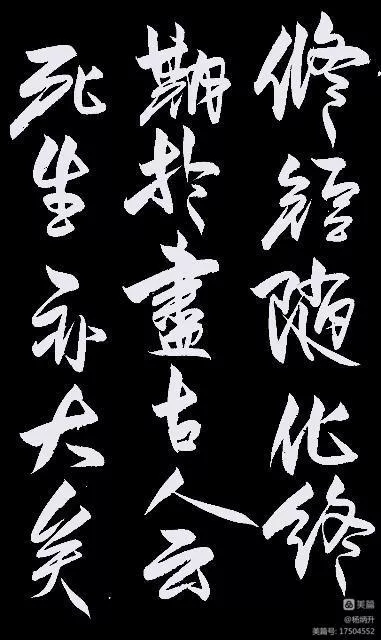 修短隨化終
期於盡古人云
死生亦大矣
美篇
@杨炳升
美篇号: 17504552